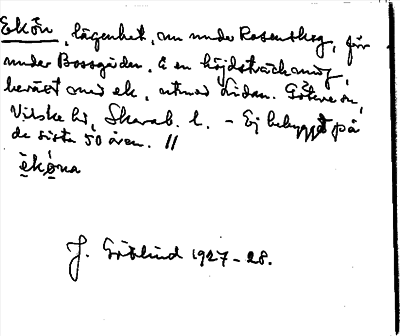 Ekön, lägenhet, nu under Rosenskog, förr
under Bossgården. Å en höjdsträckning,
beväxt med ek, utmed Lidan. Götene sn,
Vilske hd, Skarab. l. – Ej bebyggd på
de sista 50 åren. //
èkǿna
J. Götlind 1927–28.